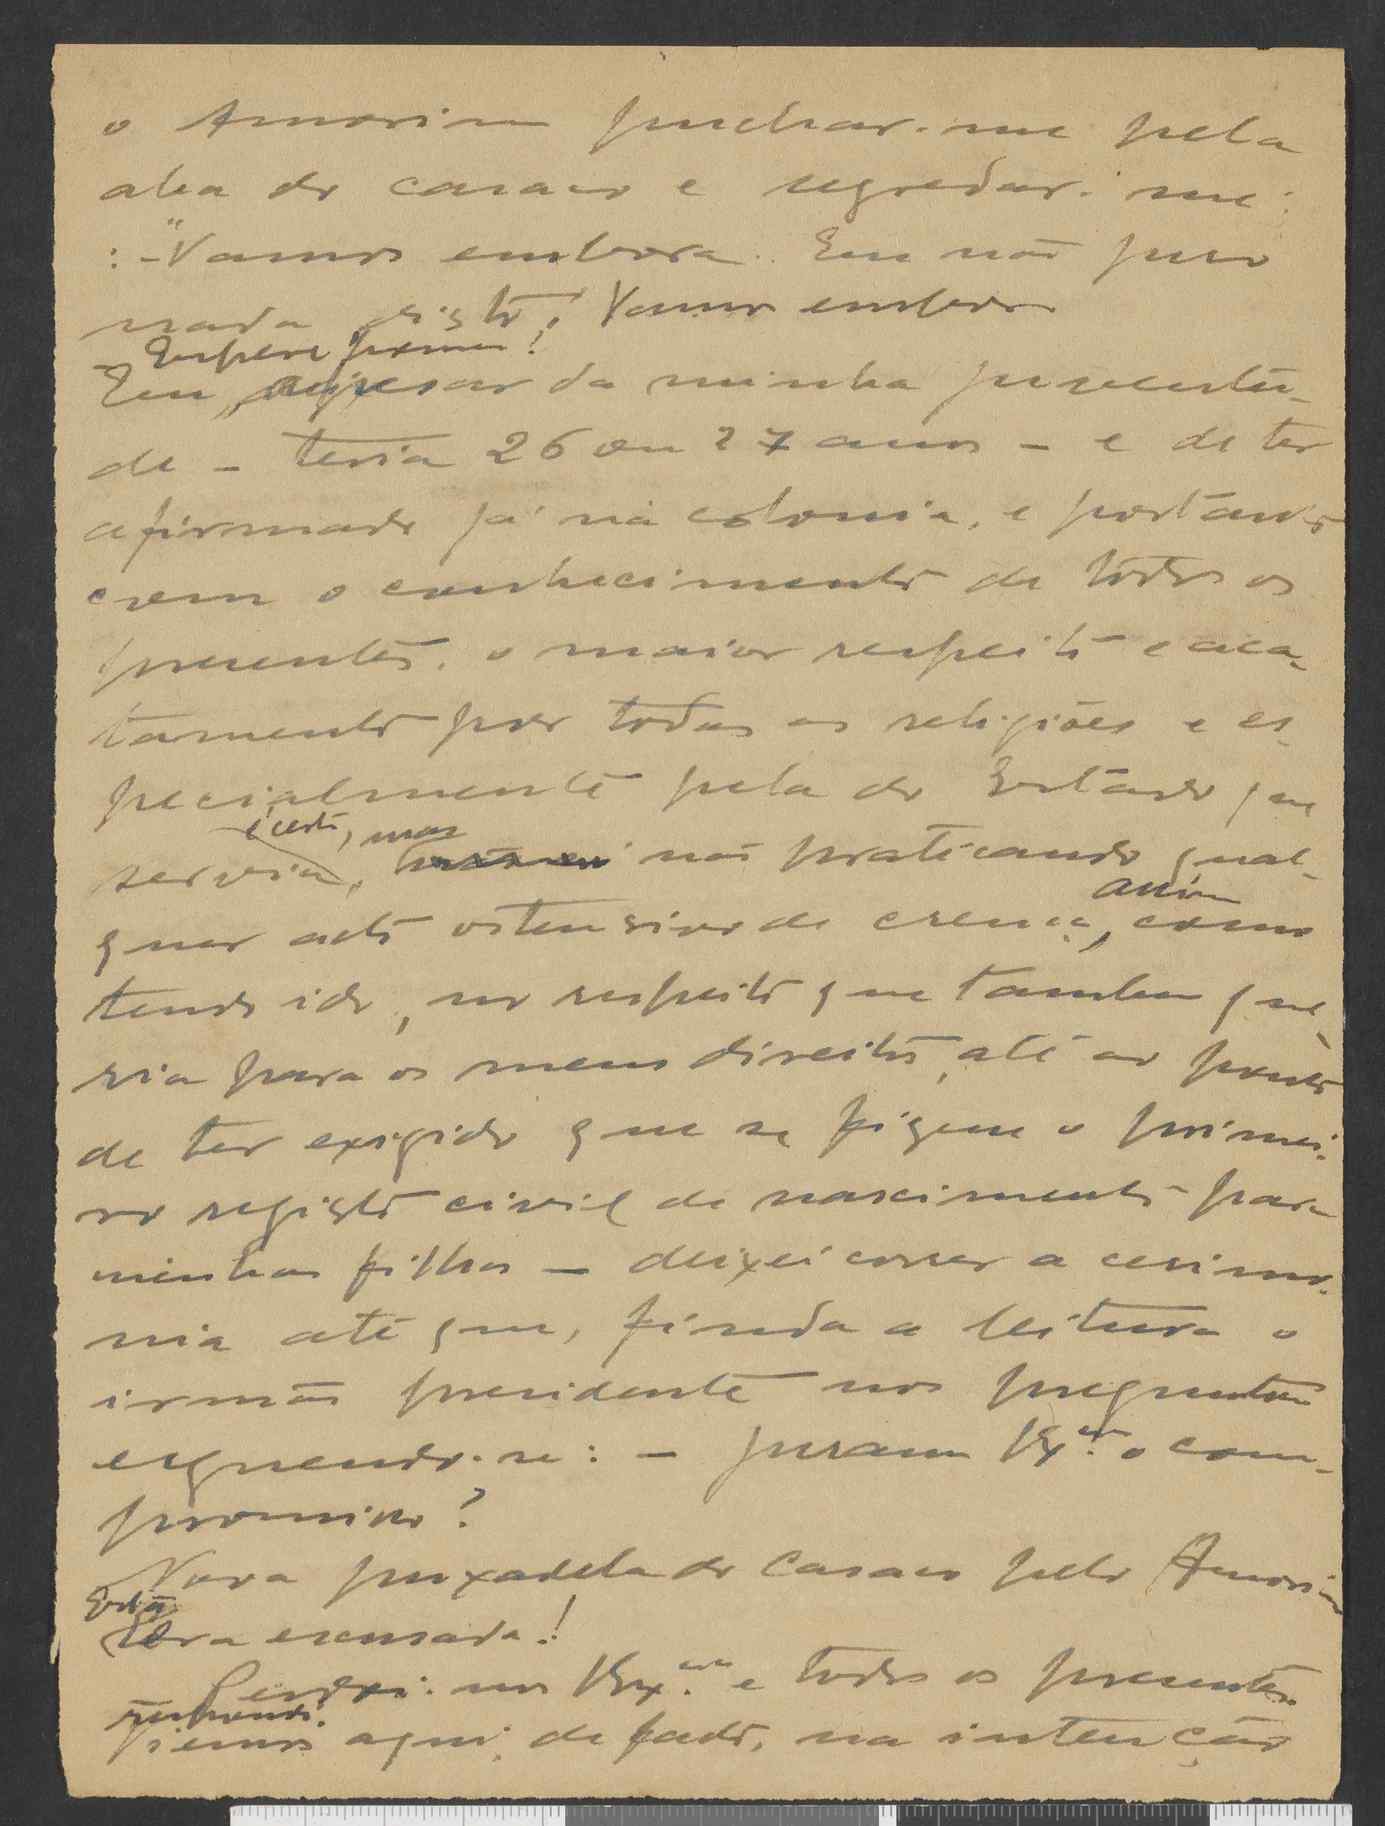 o Amorim puchar-me pela
aba do casaco e segredar-me:
:-"Vamos embora. Eu não juro
nada disto! Vamos embora
Espere homem!
Eu, apesar da minha juventu-
de - teria 26 ou 27 anos - e de ter
afirmado já na colonia, e portanto
com o conhecimento de todos os
presentes, o maior respeito e aca-
tamento por todas as religiões e es-
pecialmente pela do Estado que
é certo, mas
servia, não praticando qual-
assim
quer acto ostensivo de crença, como
tendo ido, no respeito que tambem que-
ria para os meus direitos, até ao ponto
de ter exigido que se fizesse o primei-
ro registo civil de nascimento para
minhas filhas - deixei correr a cerimo-
nia até que, finda a leitura o
irmão presidente nos preguntou
erguendo-se: - juram VEx.as o com-
promisso?
Nova puxadela do casaco pelo Amorim
Então
era escusada!
Perdoi-nos VEx.as e todos os presentes
respondi.
viemos aqui, de facto, na intenção